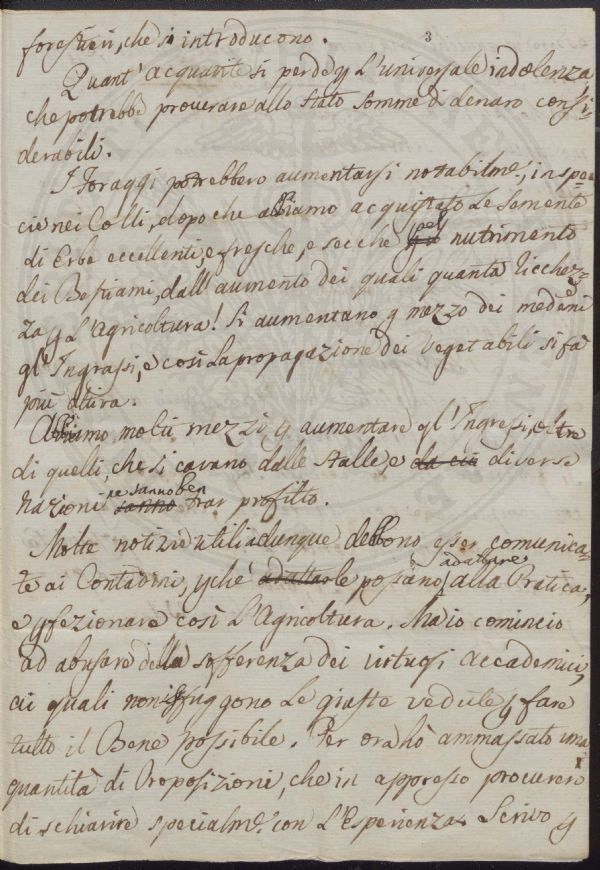 3
forestieri, che si introducono.
Quant' acquavite si perde p L'universale indolenza
che potrebbe procurare allo Stato somme di denaro consi-
derabili.
I Foraggi potrebbero aumentarsi notabilme., in spe-
cie nei Colli, dopo che abbiamo acquistato Le Semente
di Erbe eccellenti, e fresche, e secche pel nutrimento
dei Bestiami, dall' aumento dei quali quanta ricchez-
za p L'Agricoltura! Si aumentano p mezzo dei medesi
gl' Ingrassi, e così La propagazione dei Vegetabili si fà
più attiva.
Abbiamo molti mezzi p aumentare gl' Ingrassi, oltre
di quelli, che si cavano dalle stalle, e da cui diverse
Nazioni ne sanno ben
sanno trar profitto.
Molte notizie utili adunque debbono esser comunica-
te ai Contadini, pchè adattarle possano adattare alla Pratica,
e pfezionare così L'Agricoltura. Ma io comincio
ad abusare della sofferenza dei virtuosi Accademici,
ai quali non isfuggono Le giuste vedute p fare
tutto il Bene possibile. Per ora hò ammassato una
quantità di Proposizioni, che in appresso procurerò
di schiarire specialme. con L'Esperienza. Scrivo p